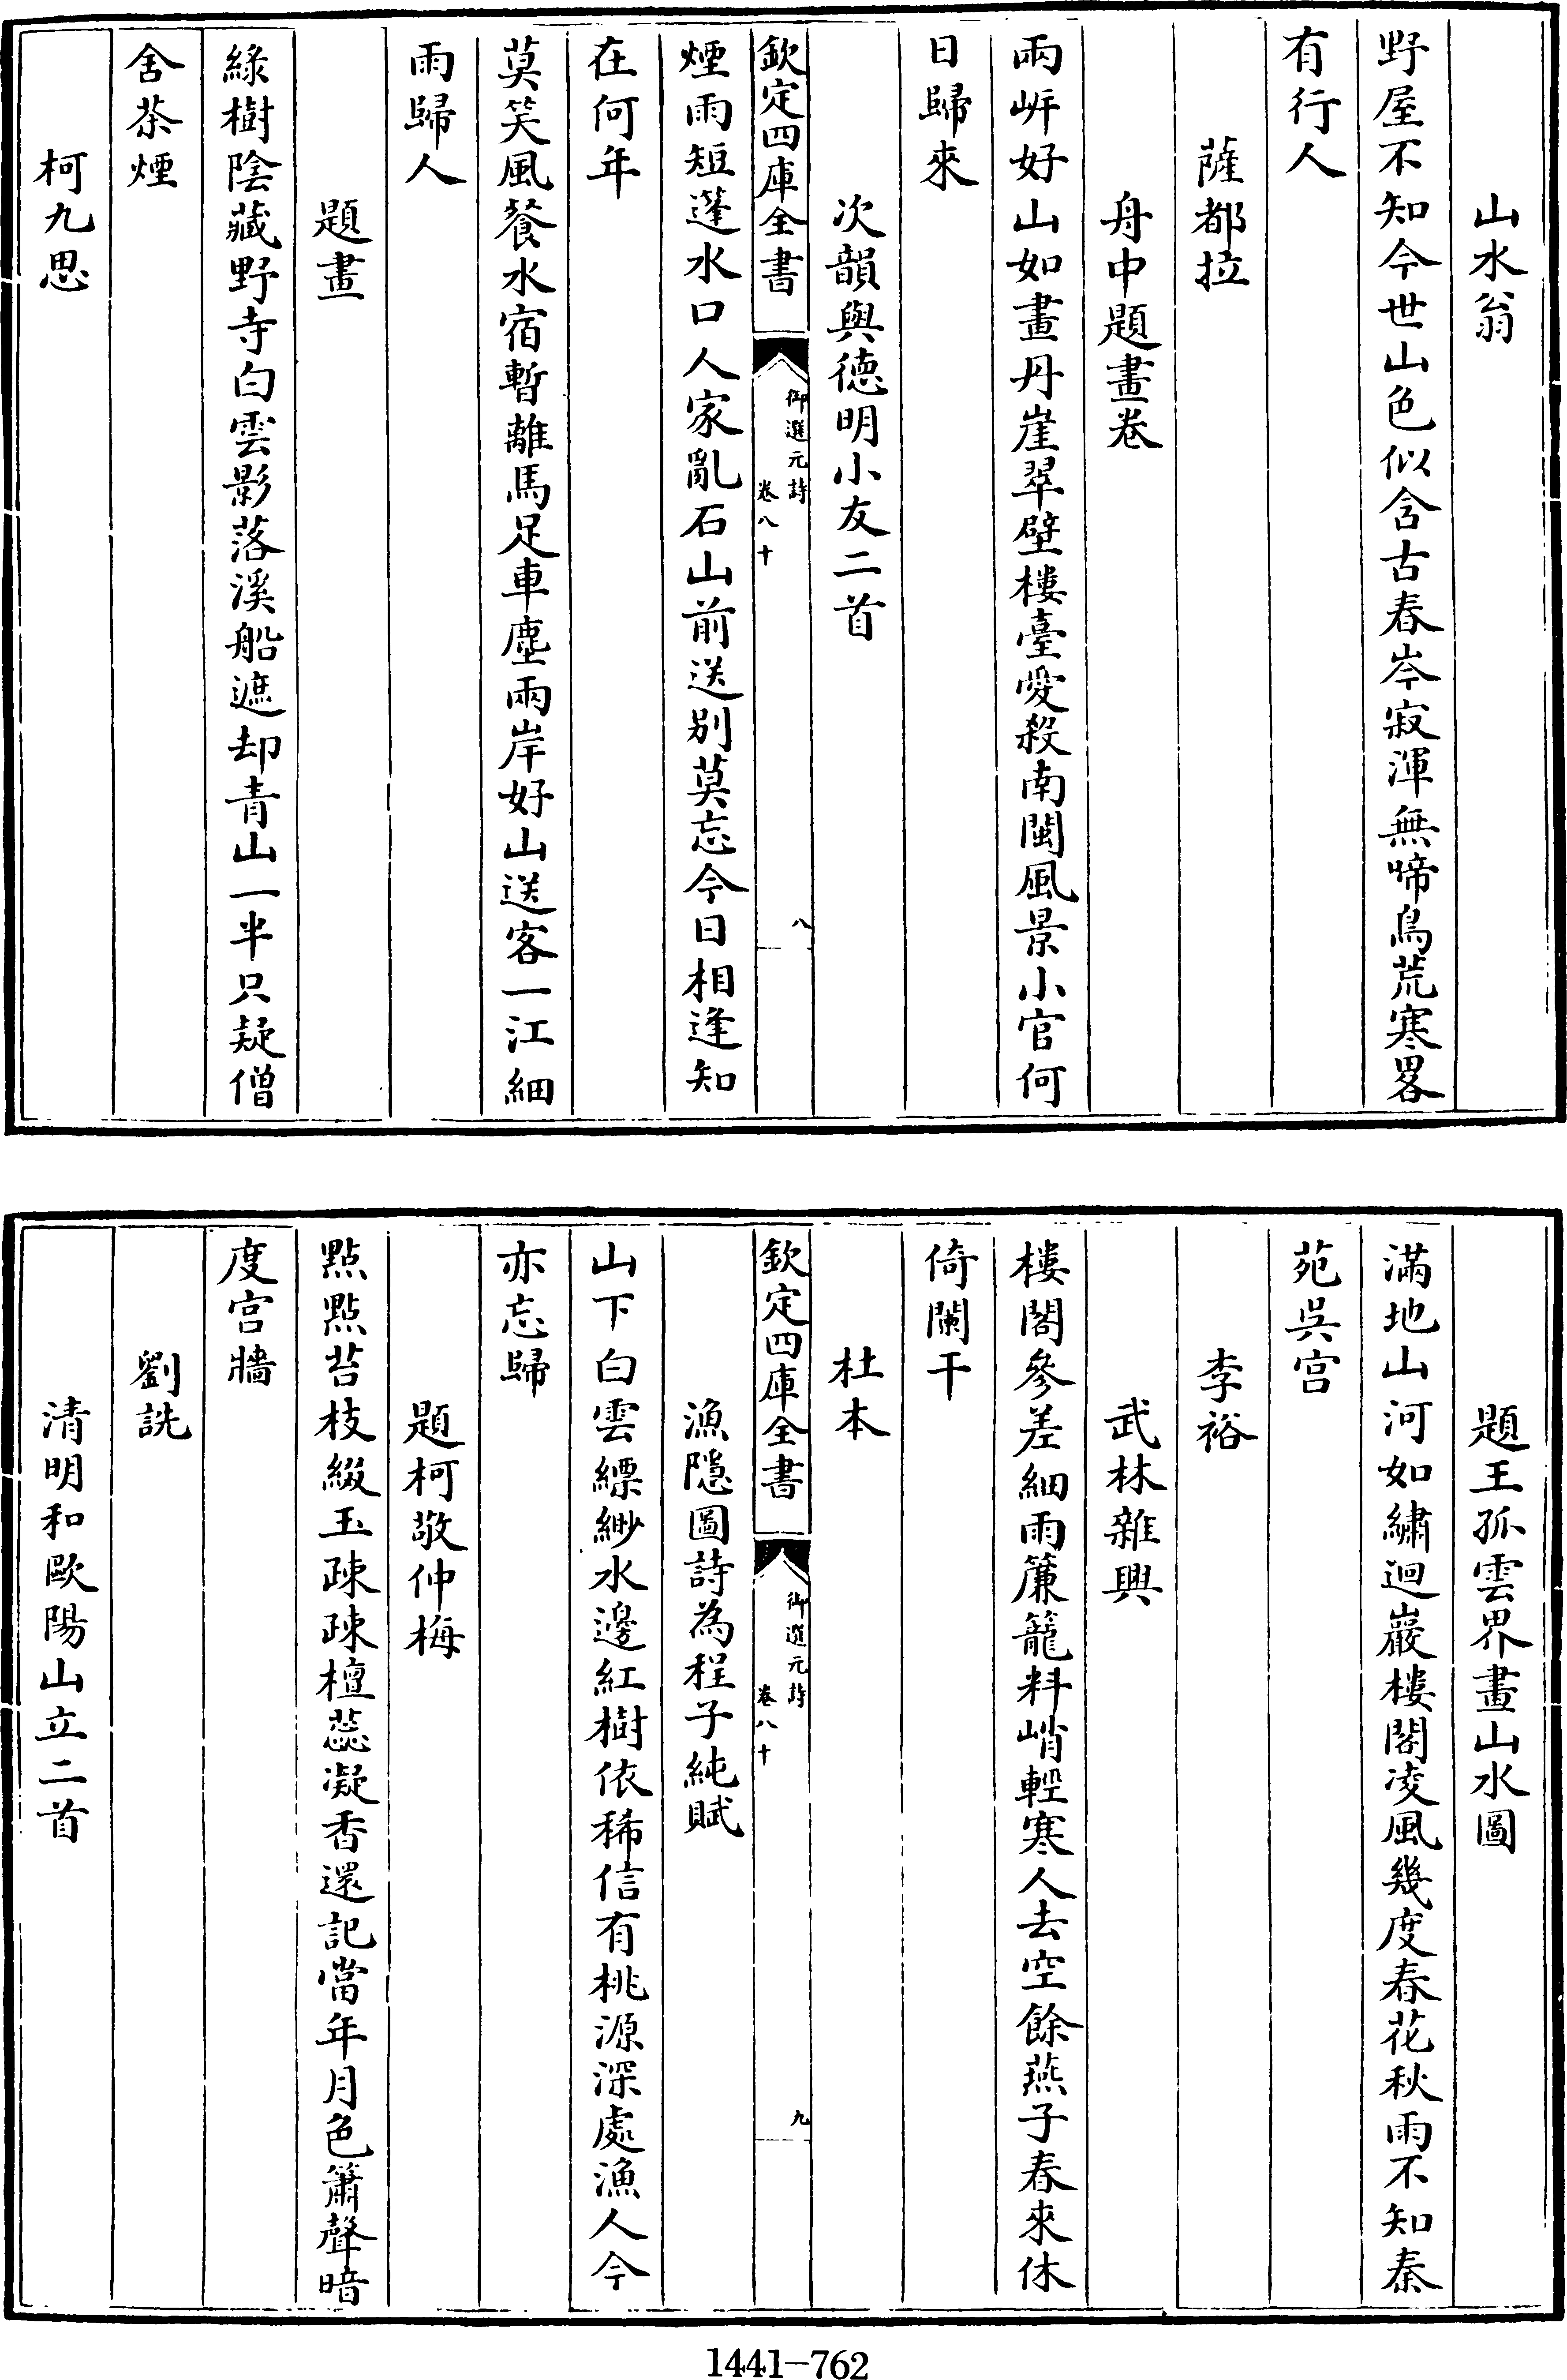 山水翁
野屋不知今世山色似含古春岑寂渾無啼鳥荒寒畧
有行人
薩都拉
舟中題畫卷
兩㟁好山如畫丹崖翠壁樓臺愛殺南閩風景小官何
日歸來
次韻與德明小友二首
欽定四庫全書
御選元詩
卷八十
八
煙雨短蓬水口人家亂石山前送別莫忘今日相逢知
在何年
莫笑風餐水宿暫離馬足車塵兩岸好山送客一江細
雨歸人
題畫
綠樹陰藏野寺白雲影落溪船遮却青山一半只疑僧
舍茶煙
柯九思
題王孤雲界畫山水圖
滿地山河如繡迴巖樓閣凌風幾度春花秋雨不知秦
苑吳宮
李裕
武林雜興
樓閣參差細雨簾籠料峭輕寒人去空餘燕子春來休
倚闌干
杜本
欽定四庫全書
御選元詩
卷八十
九
漁隱圖詩為程子純賦
山下白雲縹緲水邊紅樹依稀信有桃源深處漁人今
亦忘歸
題柯敬仲梅
點點苔枝綴玉疎疎檀蕊凝香還記當年月色簫聲暗
度宮牆
劉詵
清明和歐陽山立二首
1441—762